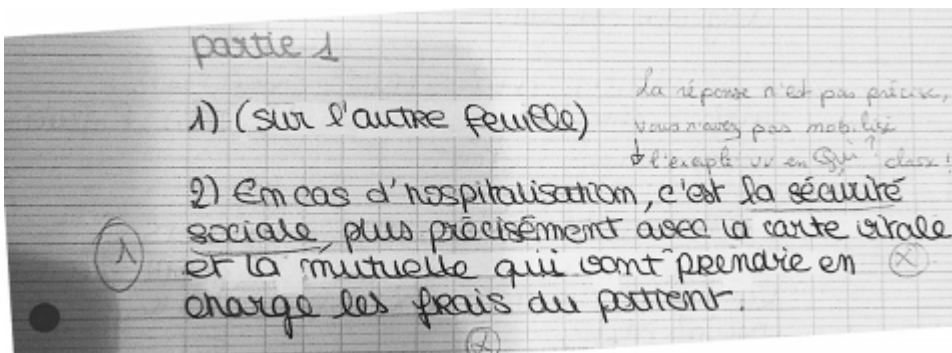 partie 1
La réponse n'est pas précise,
1) (sur l'autre feuille)
vous n'avez pas mobilisé
l'exemple vu en classe !
Qui ?
2) En cas d'hospitalisation, c'est la sécurité
sociale, plus précisément avec la carte vitale
1
et la mutuelle qui vont prendre en
charge les frais du patient.